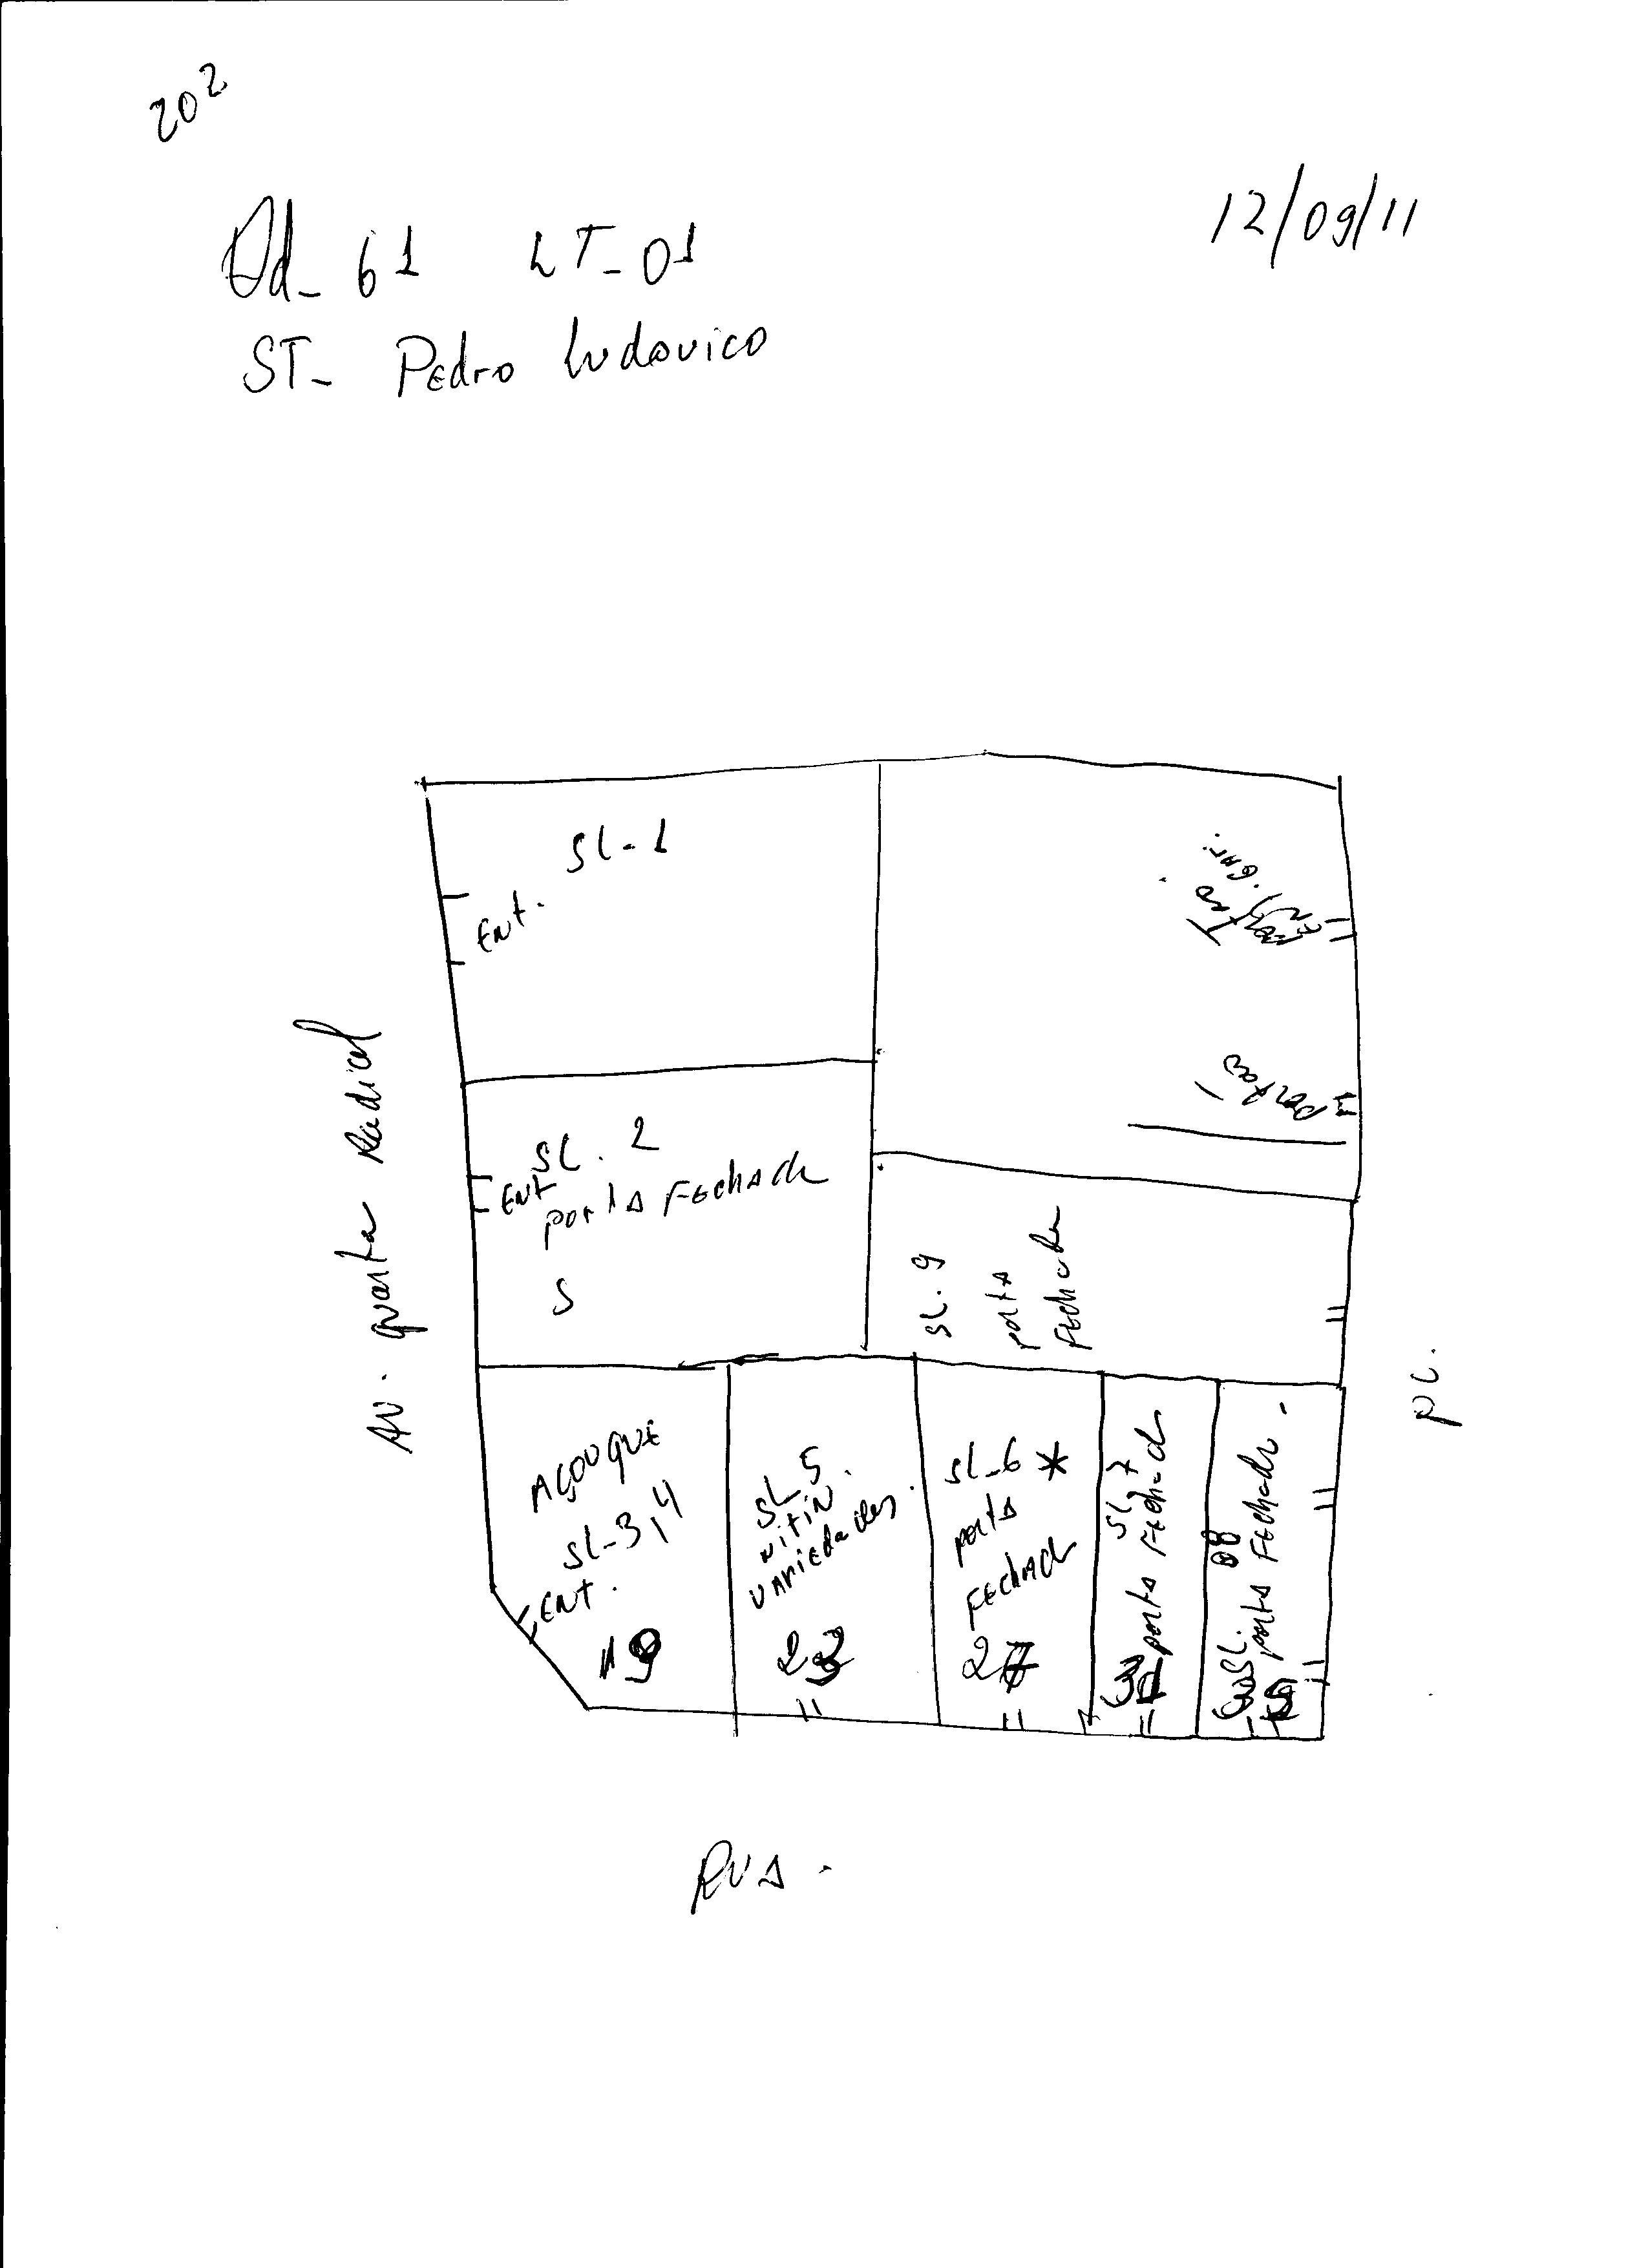 202
Qd_ 61 LT_01
12/09/11
ST_ Pedro Ludovico
SL-1
Ent.
SL. 2
Ent
porta Fechada
S
Portão
Av. quarta Radial
SL. 9
porta
Fechada
PC.
AÇOUQUE
SL-3,4
ENT.
19
SL 5.
variedades.
23
SL-6 *
porta
Fechada
27
SL 7
porta Fechad
31
SL. 08
porta Fechada.
RUA.